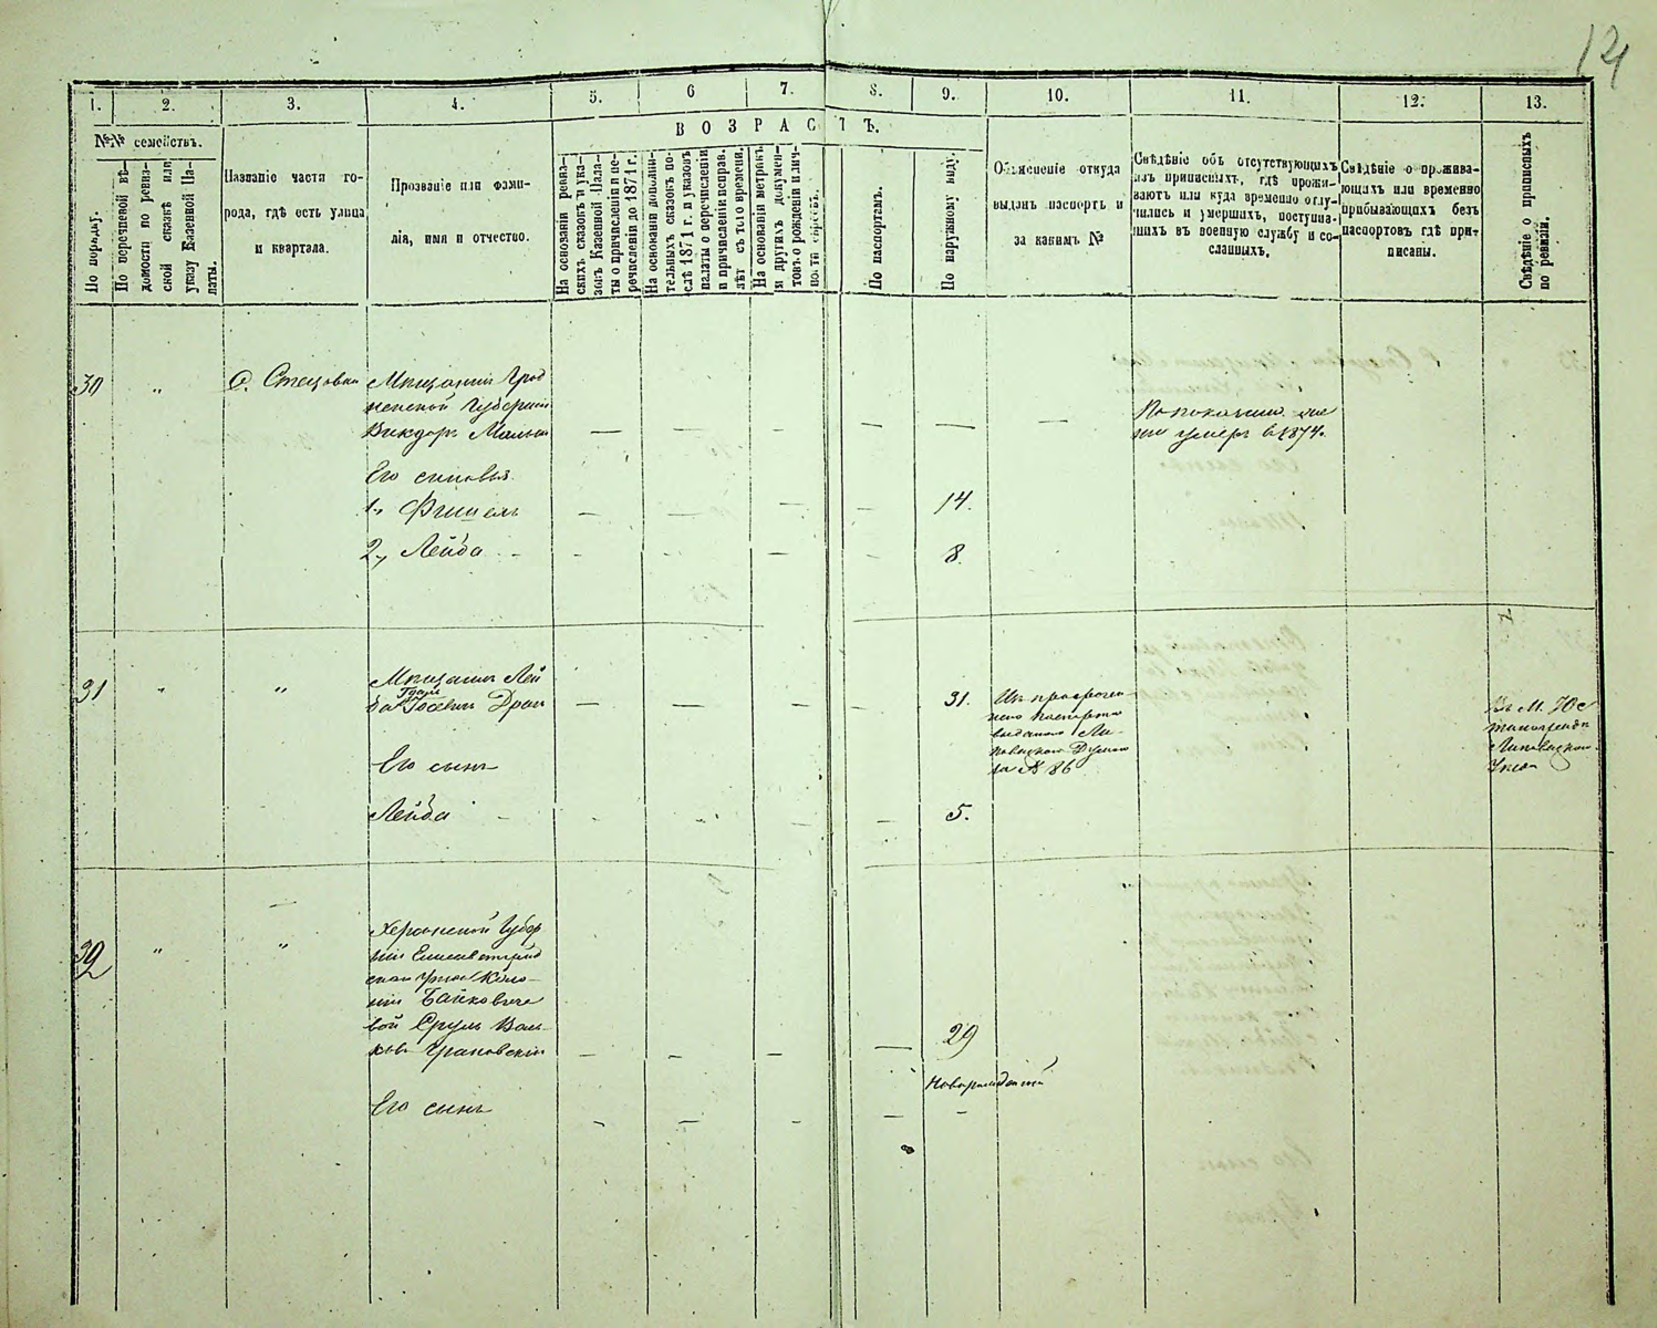 124
1. 2. 3. 4. 5. 6 7. 8. 9. 10. 11. 12. 13.
№№ семействъ.
По порядку.
По перечневой вѣ-
домости по ревиз-
ской сказкѣ или
указу Казенной Па-
латы.
Названіе части го-
рода, гдѣ есть улица
и квартала.
Прозваніе или фами-
лія, имя и отчество.
ВОЗРАСТЪ.
На основаніи ревиз-
скихъ сказокъ и ука-
зовъ Казенной Пала-
ты о причисленіи и пе-
речисленіи до 1871 г.
На основаніи дополни-
тельныхъ сказокъ по-
слѣ 1871 г. и указовъ
палаты о перечисленіи
и причисленіи исправ.
лѣт съ того времени.
На основаніи метрикъ
и другихъ докумен-
товъ о рожденіи и лич-
По паспортамъ.
По наружному виду.
Объясненіе откуда
выданъ паспортъ и
за какимъ №
Свѣдѣніе объ отсутствующихъ
изъ приписныхъ, гдѣ прожи-
ваютъ или куда временно отлу-
чились и умершихъ, поступив-
шихъ въ военную службу и со-
сланныхъ.
Свѣдѣніе о прожива-
ющихъ или временно
прибывающихъ безъ
паспортовъ гдѣ при-
писаны.
Свѣдѣніе о приписныхъ
по ревизіи.
30 " С. Стецовка Мѣщанинъ Грод
ненской Губерніи
Викдоръ — — — — — —
умеръ в 1874.
Его сыновья
1., Фишель — — — — 14.
2., Лейба — — — — 8.
31 " " Мѣщанинъ Лей
ба Іосевъ — — — — 31.
Изъ просрочен
наго паспорта
выданаго Ли-
повецкою Думою
за № 86
Въ М.
Липовецкаго
Уѣзда
Его сынъ
Лейба — — — — — 5.
32 " " Херсонской Губер
ніи Елисаветград
скаго уѣзда Коло-
ніи
вой СрульВоль-
ковъ Грановскій — — — — 29
Новорожденный
Его сынъ — — — — —